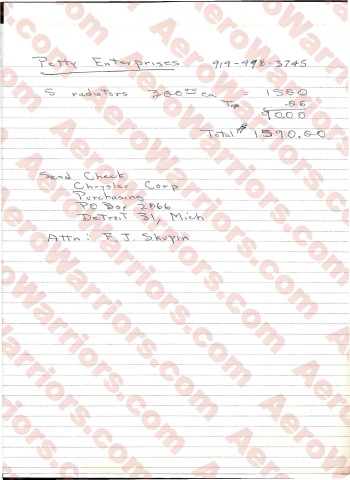 Petty Enterprises 919-498-3745
5 radiators 300.00 ea = 1500
Tax .06
90.00
Total # 1590.00
Send Check
Chrysler Corp
Purchasing
PO Box 2866
Detroit 31, Mich
Attn: F.J. Skupin
AeroWarriors.com